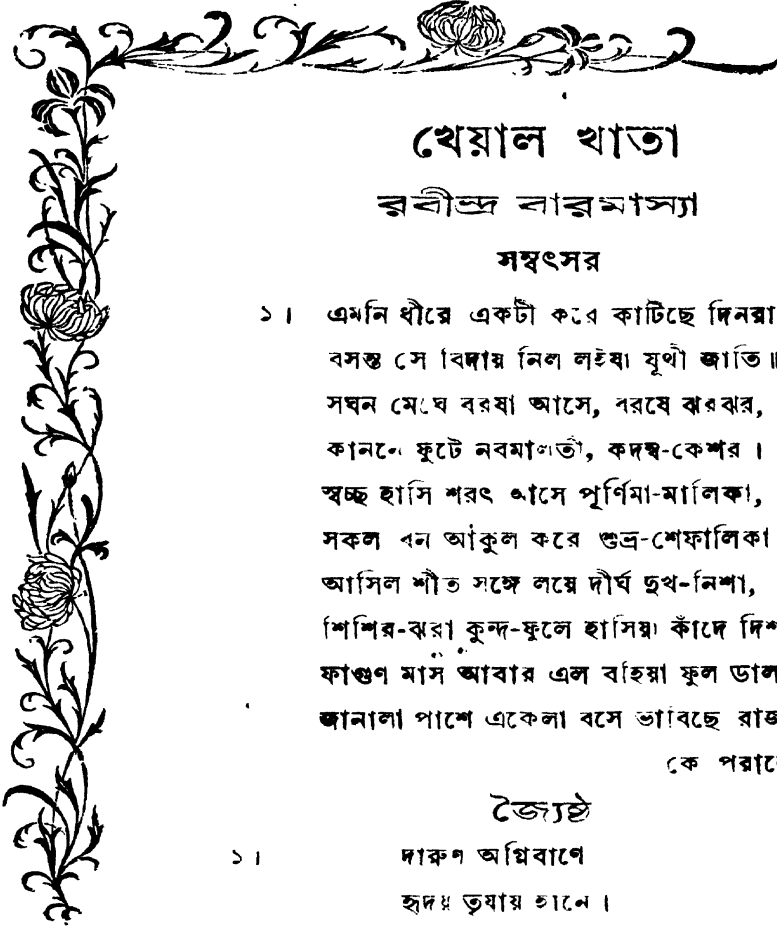 খেয়াল খাতা
রবীন্দ্র বারমাস্যা
সম্বৎসর
১। এমনি ধীরে একটী করে কাটিছে দিনরা
বসন্ত সে বিদায় নিল লইযা যূথী জাতি॥
সঘন মেঘে বরষা আসে, বরষে ঝরঝর,
কাননে ফুটে নবমালতী, কদম্ব-কেশর।
স্বচ্ছ হাসি শরৎ আসে পূর্ণিমা-মালিকা,
সকল বন আকুল করে শুভ্র-শেফালিকা
আসিল শীত সঙ্গে লয়ে দীর্ঘ দুখ-নিশা,
শিশির-ঝরা কুন্দ-ফুলে হাসিয়া কাঁদে দিশ
ফাগুণ মাস আবার এল বহিয়া ফুল ডাল
জানালা পাশে একেলা বসে ভাবিছে রাজ
কে পরালে
জ্যৈষ্ঠ
১। দারুণ অগ্নিবাণে
হৃদয় তৃষায় হানে।